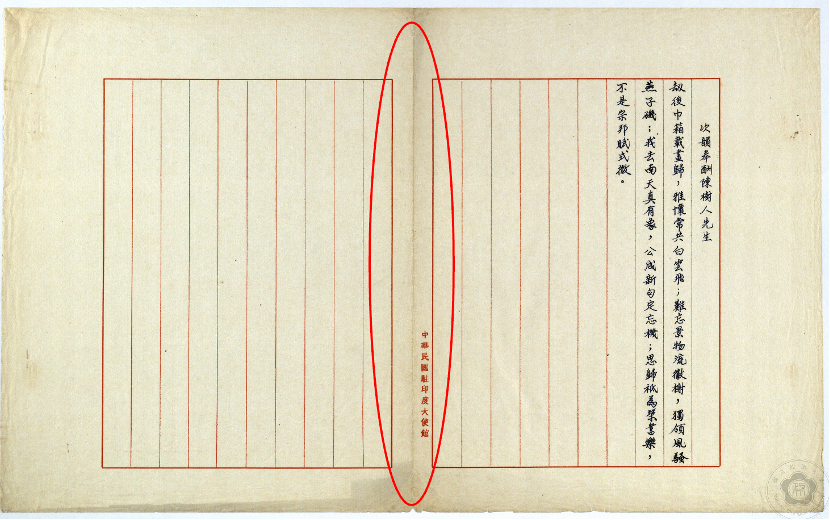 次韻奉酬陳樹人先生
劫後巾箱載畫歸,雅懷常共白雲飛;難忘景物流徽榭,獨領風騷
燕子磯;我去南天真有象,公成新句定忘機;思歸祗為棠書樂,
不是柴邦賦式微。
中華民國駐印度大使館